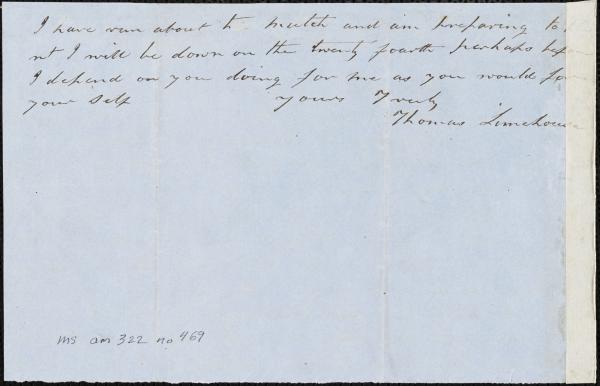 I have run about to match and am preparing to
nt I will be down on the twenty fourth perhaps befor
I depend on you doing for me as you would for
your self yours Truly
Thomas Limehouse
ms am 322 no 469